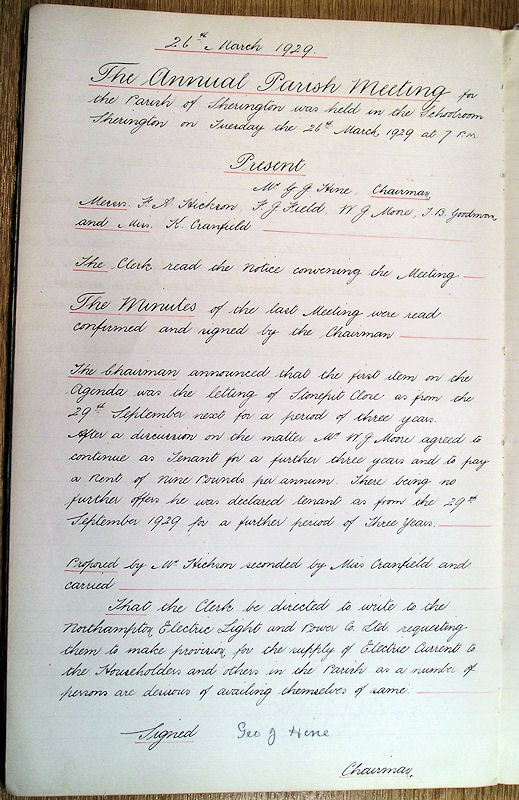 26th March 1929.
The Annual Parish Meeting for
the Parish of Sherington was held in the Schoolroom
Sherington on Tuesday the 26th March 1929 at 7 P.M.
Present
Mr G J Hine Chairman,
Messrs. F. A. Hickson, F. J. Field, W J Moore, J. B. Goodman,
and Miss. K. Cranfield
The Clerk read the Notice convening the Meeting
The Minutes of the last Meeting were read
confirmed and signed by the Chairman
The Chairman announced that the first item on the
Agenda was the letting of Stonepit Close as from the
29th September next for a period of three years.
After a discussion on the matter Mr W J Moore agreed to
continue as Tenant for a further three years and to pay
a Rent of Nine Pounds per annum. There being no
further offers he was declared tenant as from the 29th
September 1929 for a further period of Three Years.
Proposed by Mr Hickson seconded by Miss Cranfield and
carried
That the Clerk be directed to write to the
Northampton, Electric Light and Power Co. Ltd. requesting
them to make provision, for the supply of Electric Current to
the Householders and others in the Parish as a number of
persons are desirous of availing themselves of same.
Signed Geo J Hine
Chairman,